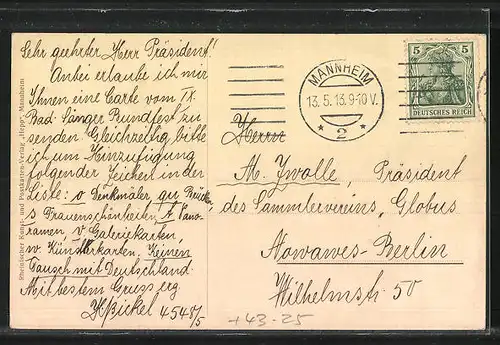 Sehr geehrter Herr Präsident!
Anbei erlaube ich mir
Ihnen eine Carte vom IX.
Bad. Sänger Bundfest zu
senden. Gleichzeitig bitte
ich um Hinzufügung
folgender Zeichen in der
Liste: o Denkmäler, qu Brücken
s Frauenschönheiten, t Pano-
ramen, v Galeriekarten,
w. Künstlerkarten. Keinen
Tausch mit Deutschland.
Mit bestem Gruss erg
HBickel 4548/5
Rheinischer Kunst- und Postkarten-Verlag „Hepp", Mannheim
MANNHEIM
13.5.13.9-10 V.
* 2 *
5 5
DEUTSCHES REICH
Herrn
M. Zwolle, Präsident
des Sammlervereins, Globus
Nowawes-Berlin
Wilhelmstr. 50
+43-25